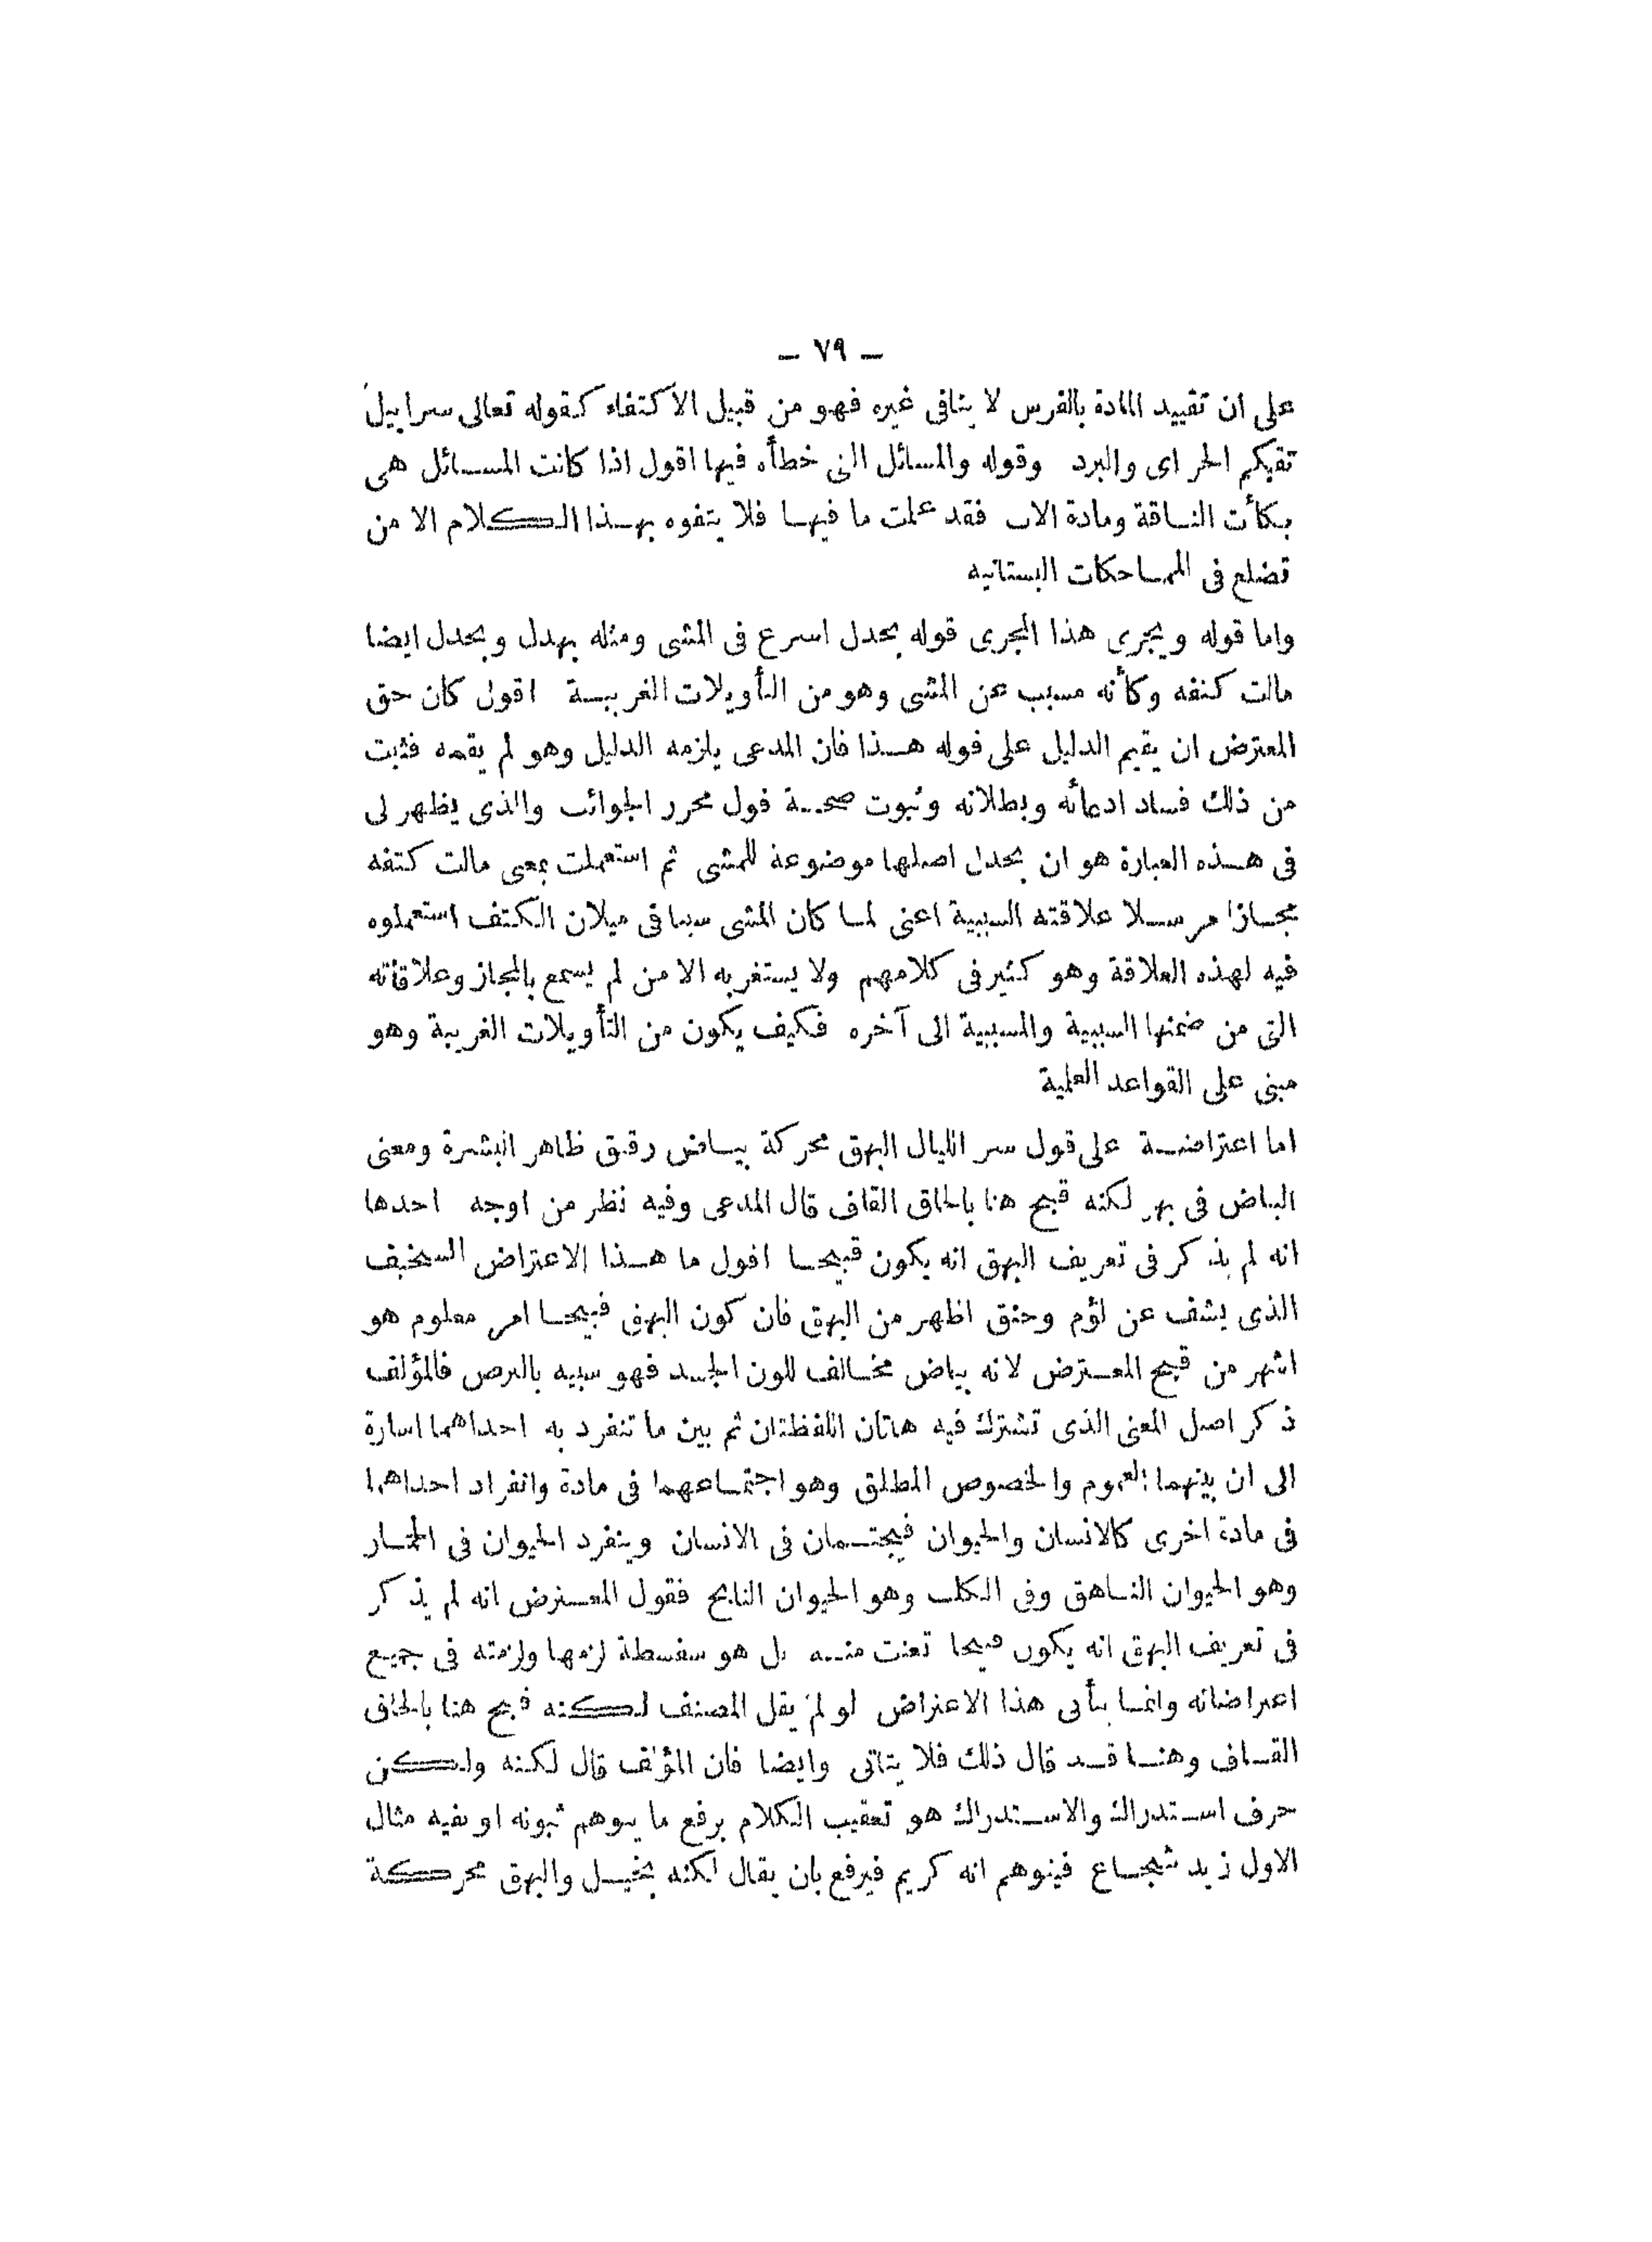 – ٧٩ –
على ان تقييد المادة بالفرس لا ينافى غيره فهو من قبيل الاكتفاء كقوله تعالى سرابيل
تقيكم الحر اى والبرد وقوله والمسائل التى خطأه فيها اقول اذا كانت المسائل هى
بكأت الناقة ومادة الاب فقد علمت ما فيها فلا يتفوه بهذا الكلام الا من
تضلع فى المماحكات البستانيه
واما قوله ويجرى هذا المجرى قوله بحدل اسرع فى المشى ومثله بهدل وبحدل ايضا
مالت كتفه وكأنه مسبب عن المشى وهو من التأويلات الغريبة اقول كان حق
المعترض ان يقيم الدليل على قوله هذا فان المدعى يلزمه الدليل وهو لم يقمه فثبت
من ذلك فساد ادعائه وبطلانه وثبوت صحة قول محرر الجوائب والذى يظهر لى
فى هذه العبارة هو ان بحدل اصلها موضوعة للمشى ثم استعملت بمعنى مالت كتفه
مجازا مرسلا علاقته السببية اعنى لما كان المشى سببا فى ميلان الكتف استعملوه
فيه لهذه العلاقة وهو كثير فى كلامهم ولا يستغربه الا من لم يسمع بالمجاز وعلاقاته
التى من ضمنها السببية والمسببية الى آخره فكيف يكون من التأويلات الغريبة وهو
مبنى على القواعد العلمية
اما اعتراضة على قول سر الليال البهق محركة بياض رقيق ظاهر البشرة ومعنى
البياض فى بهر لكنه قبح هنا بالحاق القاف قال المدعى وفيه نظر من اوجه احدها
انه لم يذكر فى تعريف البهق انه يكون قبيحا اقول ما هذا الاعتراض السخيف
الذى يشف عن لؤم وحنق اظهر من البهق فان كون البهق قبيحا امر معلوم هو
اشهر من قبح المعترض لانه بياض مخالف للون الجسد فهو شبيه بالبرص فالمؤلف
ذكر اصل المعنى الذى تشترك فيه هاتان اللفظتان ثم بين ما تنفرد به احداهما اشارة
الى ان بينهما العموم والخصوص المطلق وهو اجتماعهما فى مادة وانفراد احداهما
فى مادة اخرى كالانسان والحيوان فيجتمعان فى الانسان وينفرد الحيوان فى الحمار
وهو الحيوان الناهق وفى الكلب وهو الحيوان النابح فقول المعترض انه لم يذكر
فى تعريف البهق انه يكون قبيحا تعنت منه بل هو سفسطة لزمها ولزمته فى جميع
اعتراضاته وانما يتأتى هذا الاعتراض لو لم يقل المصنف لكنه قبح هنا بالحاق
القاف وهنا قد قال ذلك فلا يتاتى وايضا فان المؤلف قال لكنه ولكن
حرف استدراك والاستدراك هو تعقيب الكلام برفع ما يتوهم ثبوته او نفيه مثال
الاول زيد شجاع فيتوهم انه كريم فيرفع بان يقال لكنه بخيل والبهق محركة